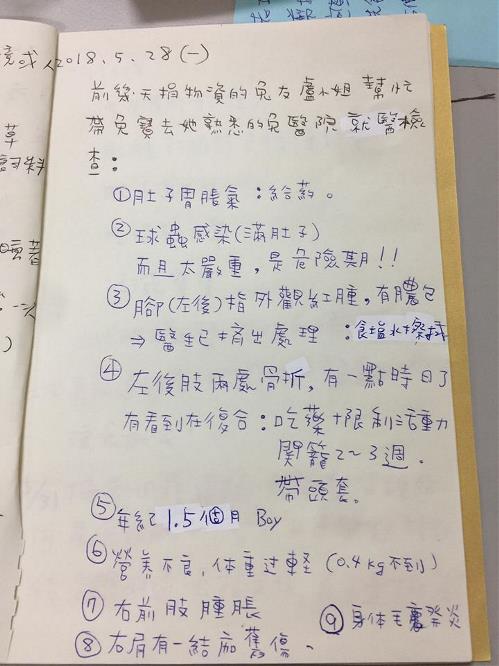 2018.5.28(一)
前幾天捐物資的兔友盧小姐幫忙
帶兔寶去她熟悉的兔醫院就醫檢
查:
①肚子胃脹氣:給葯。
②球蟲感染(滿肚子)
而且太嚴重,是危險期!!
③腳(左後)指外觀紅腫,有膿包
⇒醫生已擠出處理:食塩水擦拭
④左後肢兩處骨折,有一點時日了
有看到在復合:吃藥+限制活動
關籠2~3週.
帶頭套。
⑤年紀1.5個月 Boy
⑥營养不良,体重过輕(0.4kg不到)
⑦右前肢腫脹
⑧右肩有一結痂舊傷.
⑨身体毛囊發炎
境或人
草
飼料
一次